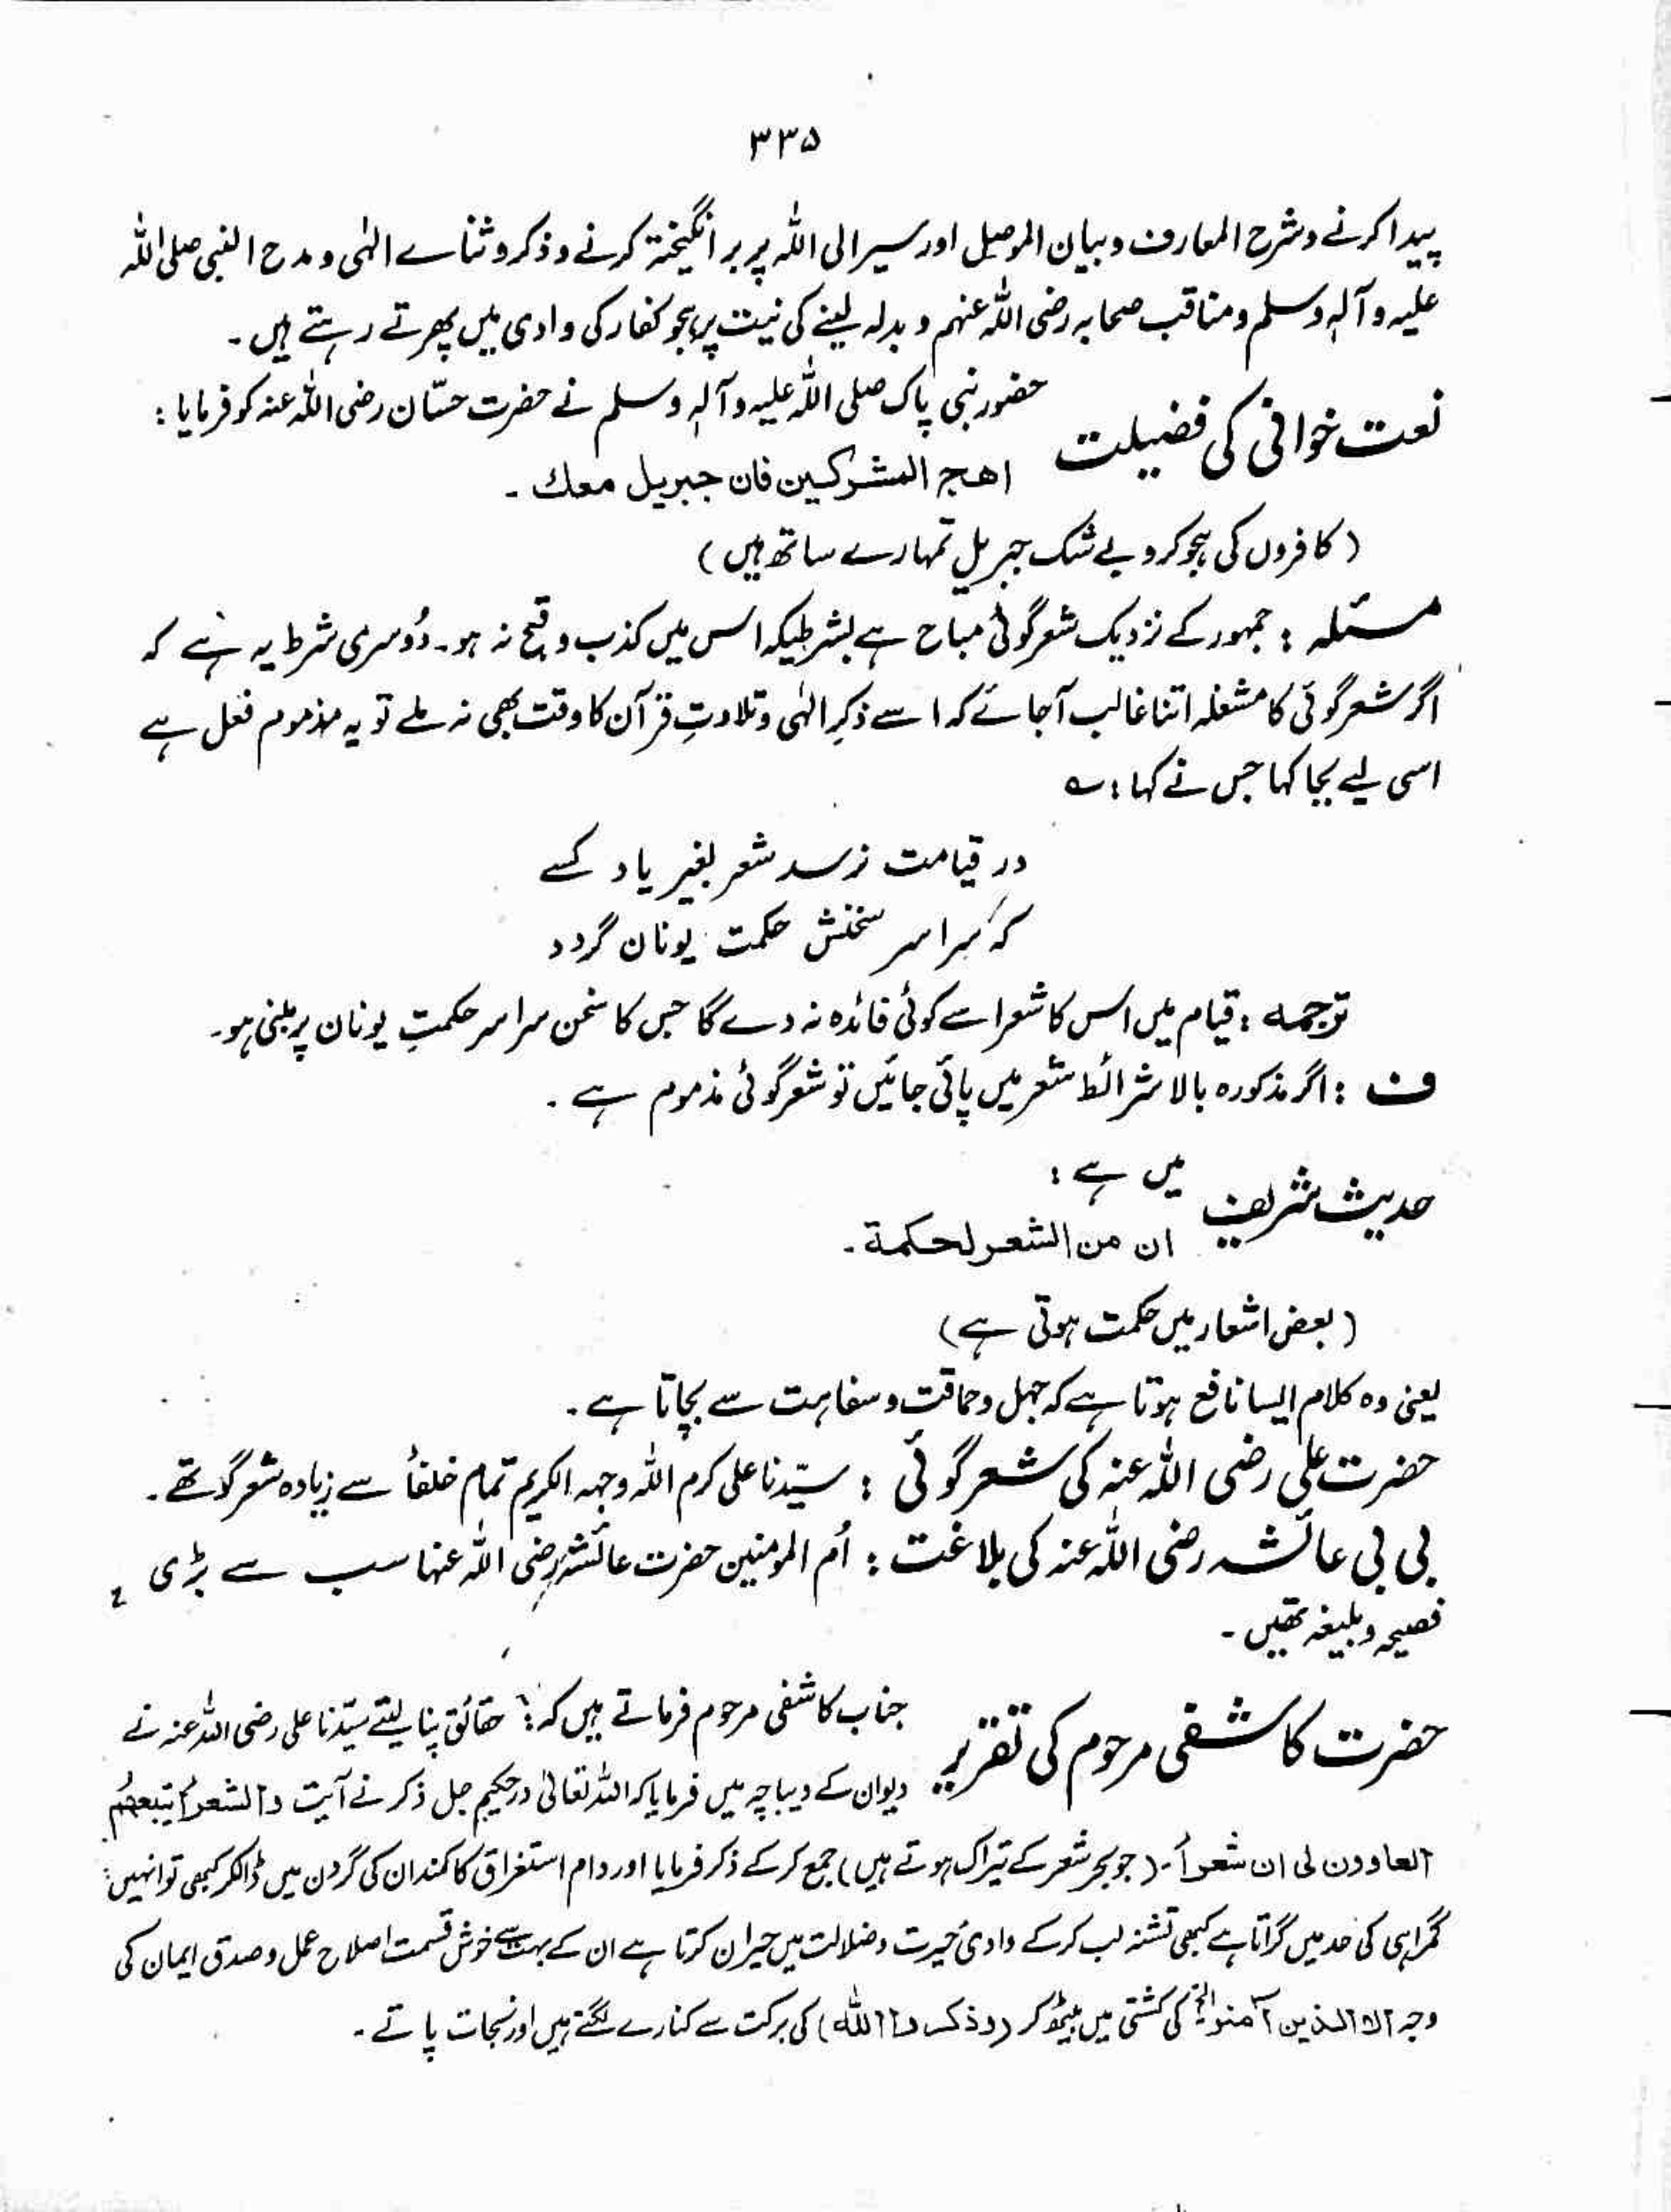 ۳۳۵
پیدا کرنے و شرح المعارف و بیان الموصیل اور سیر الی اللہ پر برانگیختہ کرنے و ذکر و ثنائے الٰہی و مدح النبی صلی اللہ
علیہ و آلہٖ وسلم و مناقب صحابہ رضی اللہ عنہم و بدلہ لینے کی نیت پر ہجو کفار کی وادی میں پھرتے رہتے ہیں ۔
نعت خوانی کی فضیلت حضور نبی پاک صلی اللہ علیہ و آلہٖ وسلم نے حضرت حسّان رضی اللہ عنہ کو فرمایا :
اهج المشركين فان جبريل معك ۔
( کافروں کی ہجو کرو بے شک جبریل تمہارے ساتھ ہیں )
مسئلہ : جمہور کے نزدیک شعر گوئی مباح ہے بشرطیکہ اس میں کذب و قبح نہ ہو۔ دُوسری شرط یہ ہے کہ
اگر شعر گوئی کا مشغلہ اتنا غالب آجائے کہ اسے ذکرِ الٰہی و تلاوتِ قرآن کا وقت بھی نہ ملے تو یہ مذموم فعل ہے
اسی لیے بجا کہا جس نے کہا : ؎
در قیامت نرسد شعر بفریاد کسے
کہ سراسر سخنش حکمت یونان گردد
ترجمہ : قیام میں اس کا شعر اسے کوئی فائدہ نہ دے گا جس کا سخن سراسر حکمتِ یونان پر مبنی ہو۔
ف : اگر مذکورہ بالا شرائط شعر میں پائی جائیں تو شعر گوئی مذموم ہے ۔
حدیث شریف میں ہے :
ان من الشعر لحكمة ۔
( بعض اشعار میں حکمت ہوتی ہے )
یعنی وہ کلام ایسا نافع ہوتا ہے کہ جہل و حماقت و سفاہت سے بچاتا ہے ۔
حضرت علی رضی اللہ عنہ کی شعر گوئی : سیّدنا علی کرم اللہ وجہہ الکریم تمام خلفأ سے زیادہ شعر گو تھے ۔
بی بی عائشہ رضی اللہ عنہ کی بلاغت : اُم المومنین حضرت عائشہ رضی اللہ عنہا سب سے بڑی
فصیحہ و بلیغہ تھیں ۔
حضرت کاشفی مرحوم کی تقریر جناب کاشفی مرحوم فرماتے ہیں کہ : حقائق پنا سیّدنا علی رضی اللہ عنہ نے
دیوان کے دیباچہ میں فرمایا کہ اللہ تعالیٰ درحکیم جل ذکر نے آیت والشعرأ يتبعهم
الغاوون لی ان شعرأ ۔ ( جو بحرِ شعر کے تیراک ہوتے ہیں ) جمع کر کے ذکر فرمایا اور دام استغراق کا کمند ان کی گردن میں ڈالکر کبھی تو انہیں
گمراہی کی حد میں گراتا ہے کبھی تشنہ لب کرکے وادیٔ حیرت و ضلالت میں حیران کرتا ہے ان کے بہت سے خوش قسمت اصلاح عمل و صدق ایمان کی
وجہ الا الذين آمنوا الخ کی کشتی میں بیٹھ کر ( وذكروا الله ) کی برکت سے کنارے لگتے ہیں اور نجات پاتے ۔